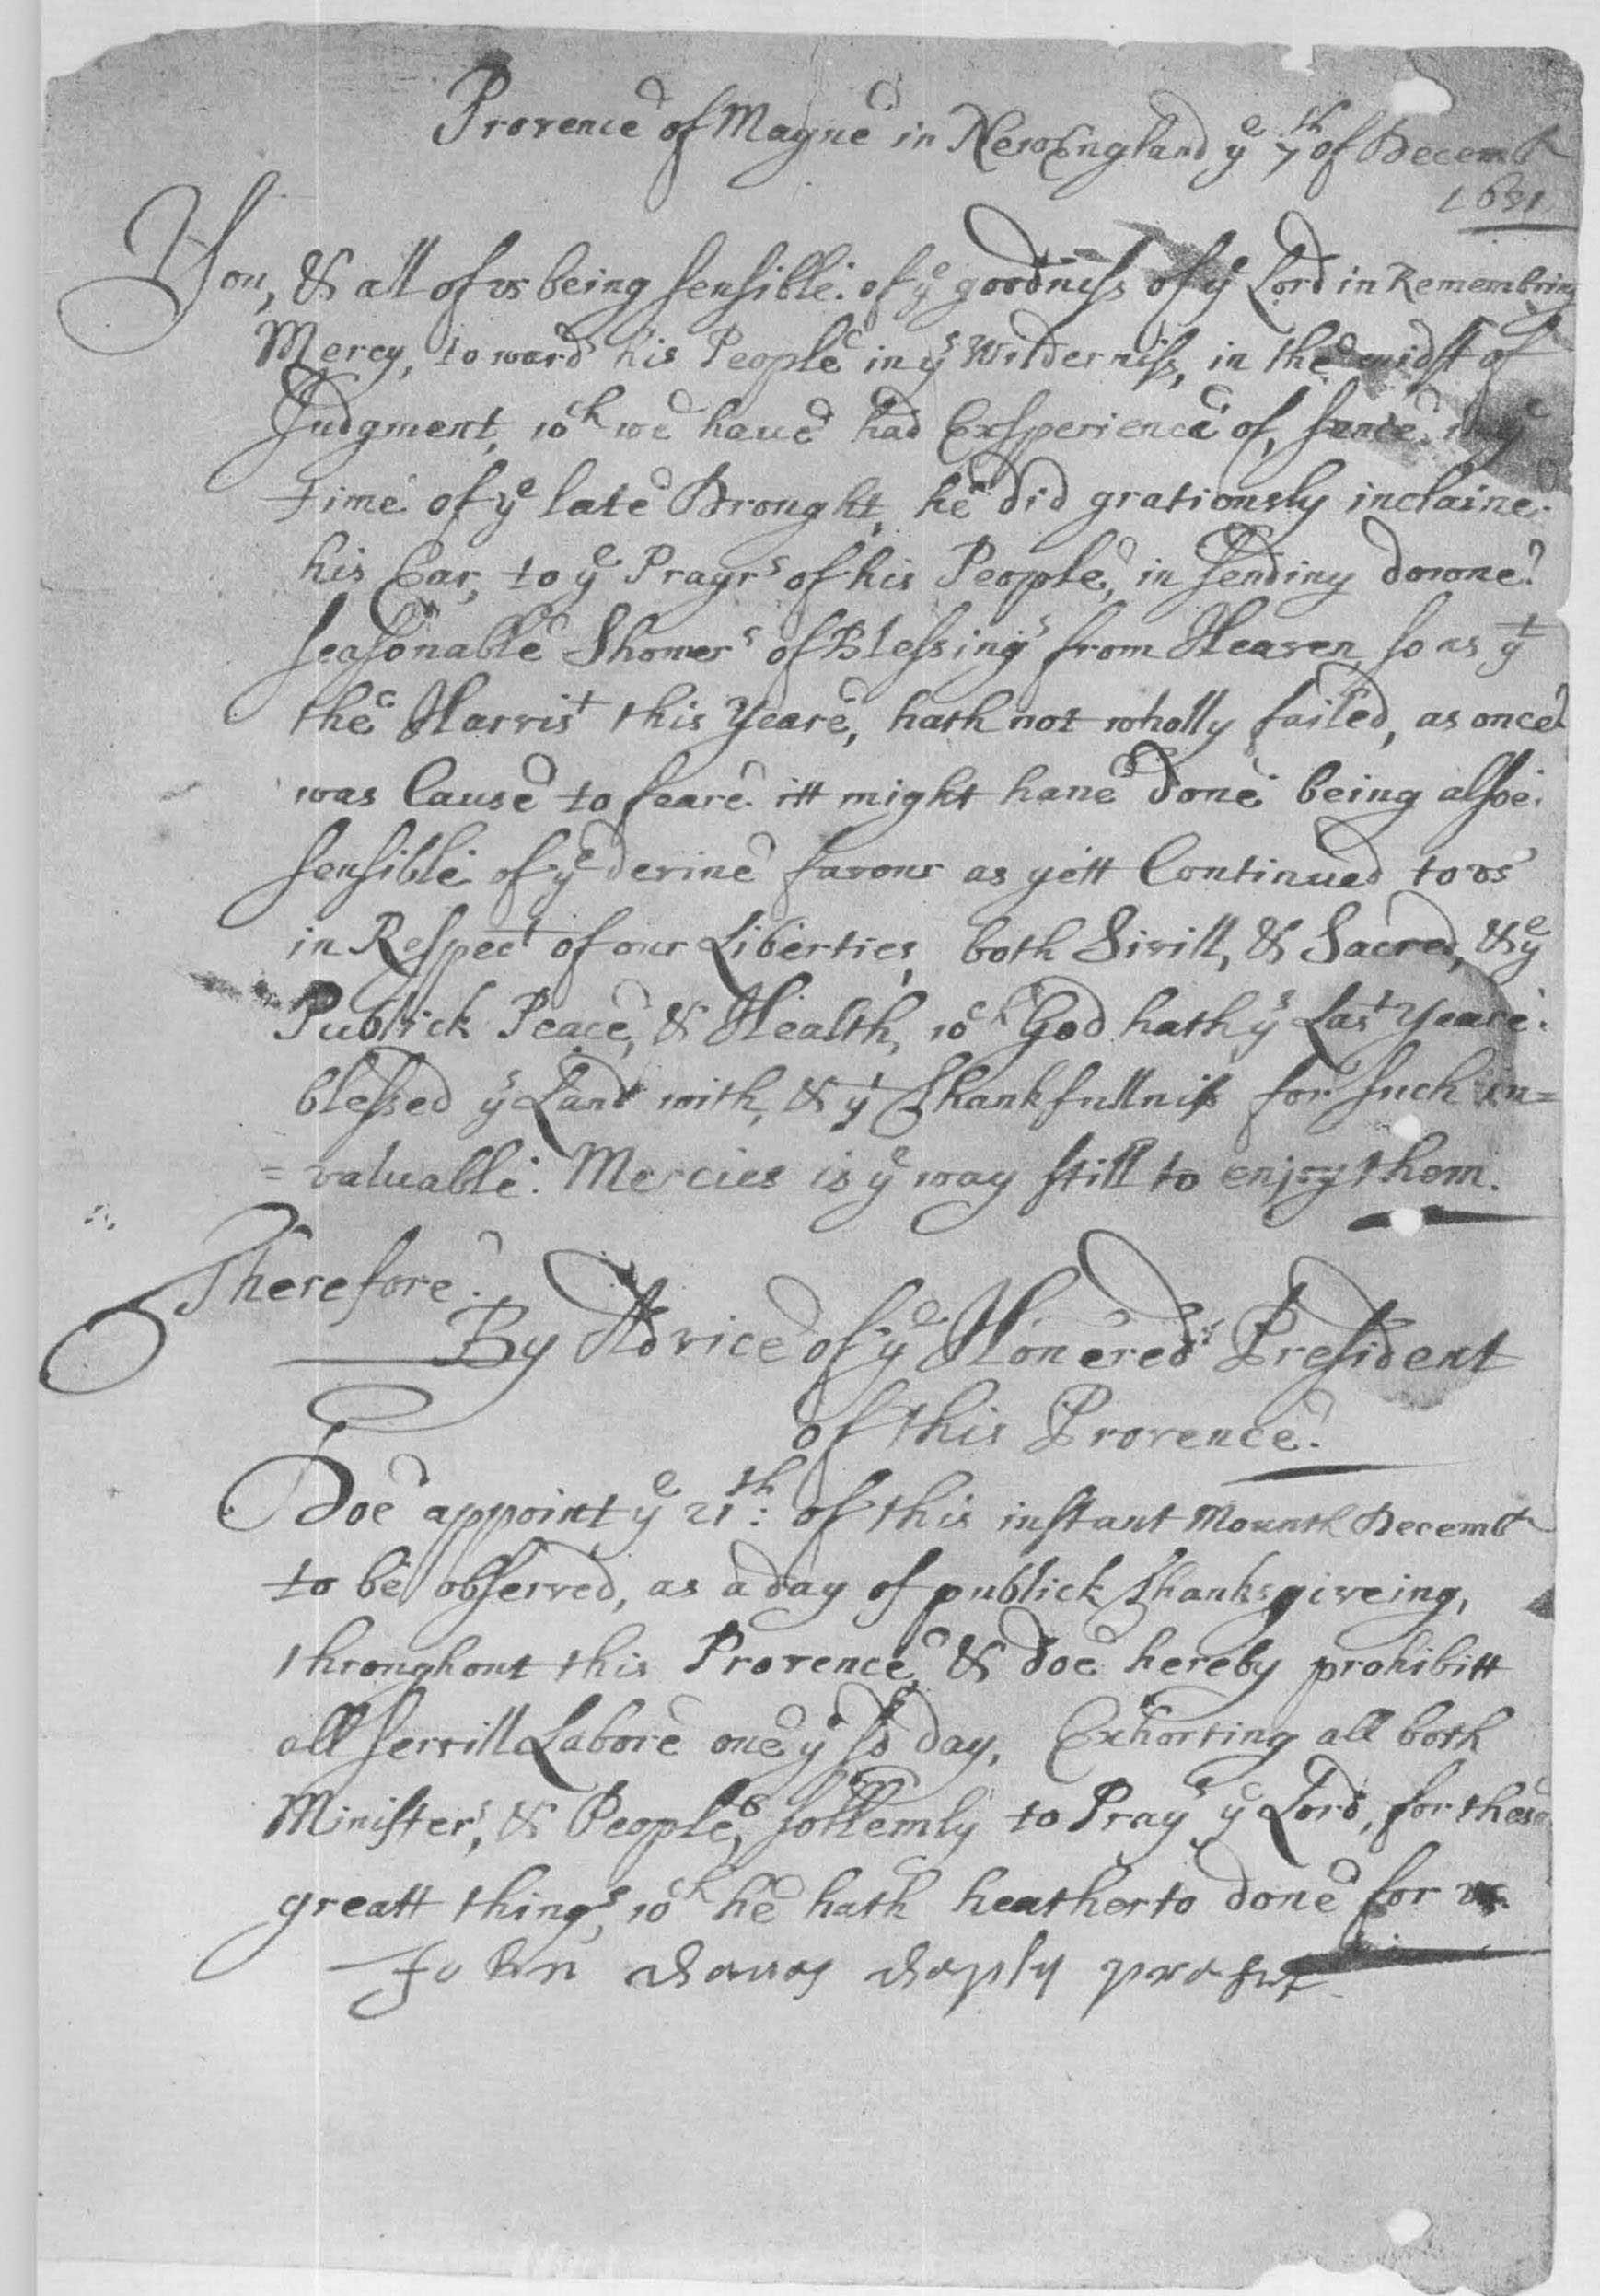 Provence of Mayne in NewEngland ye 7th of Decembr
1681
You, & all of vs being sensible of ye goodness of ye Lord in Remembring
Mercy, toward his People in ys Wilderniss, in the midst of
Judgment, wch we have had Exsperience of, sence in ye
time of ye late Drought, he did gratiously inclaine
his Ear, to ye Prayrs of his People, in sending downe
seasonable Showers of Blessings from Heaven, so as yt
the Harvist this Yeare, hath not wholly failed, as once
was Cause to feare itt might have done being alsoe
sensible of ye devine favour as yett Continued to vs
in Respect of our Liberties, both Sivill, & Sacred, & ye
Publick Peace, & Health, wch God hath ys Last Yeare
blessed ys Land with, & yt Thankfullniss for such in=
=valuable Mercies is ye way still to enjoy them.
Therefore
By Advice of ye Honered President
of this Provence
Doe appoint ye 21th: of this instant Mounth Decembr
to be observed, as a day of publick Thanksgiveing,
throughout this Provence, & doe hereby prohibitt
all servill Labore one ye sd day, Exhorting all both
Ministers, & People, sollemly to Prays ye Lord, for those
greatt things, wch he hath heatherto done for vs.
John Daves Depty presidt